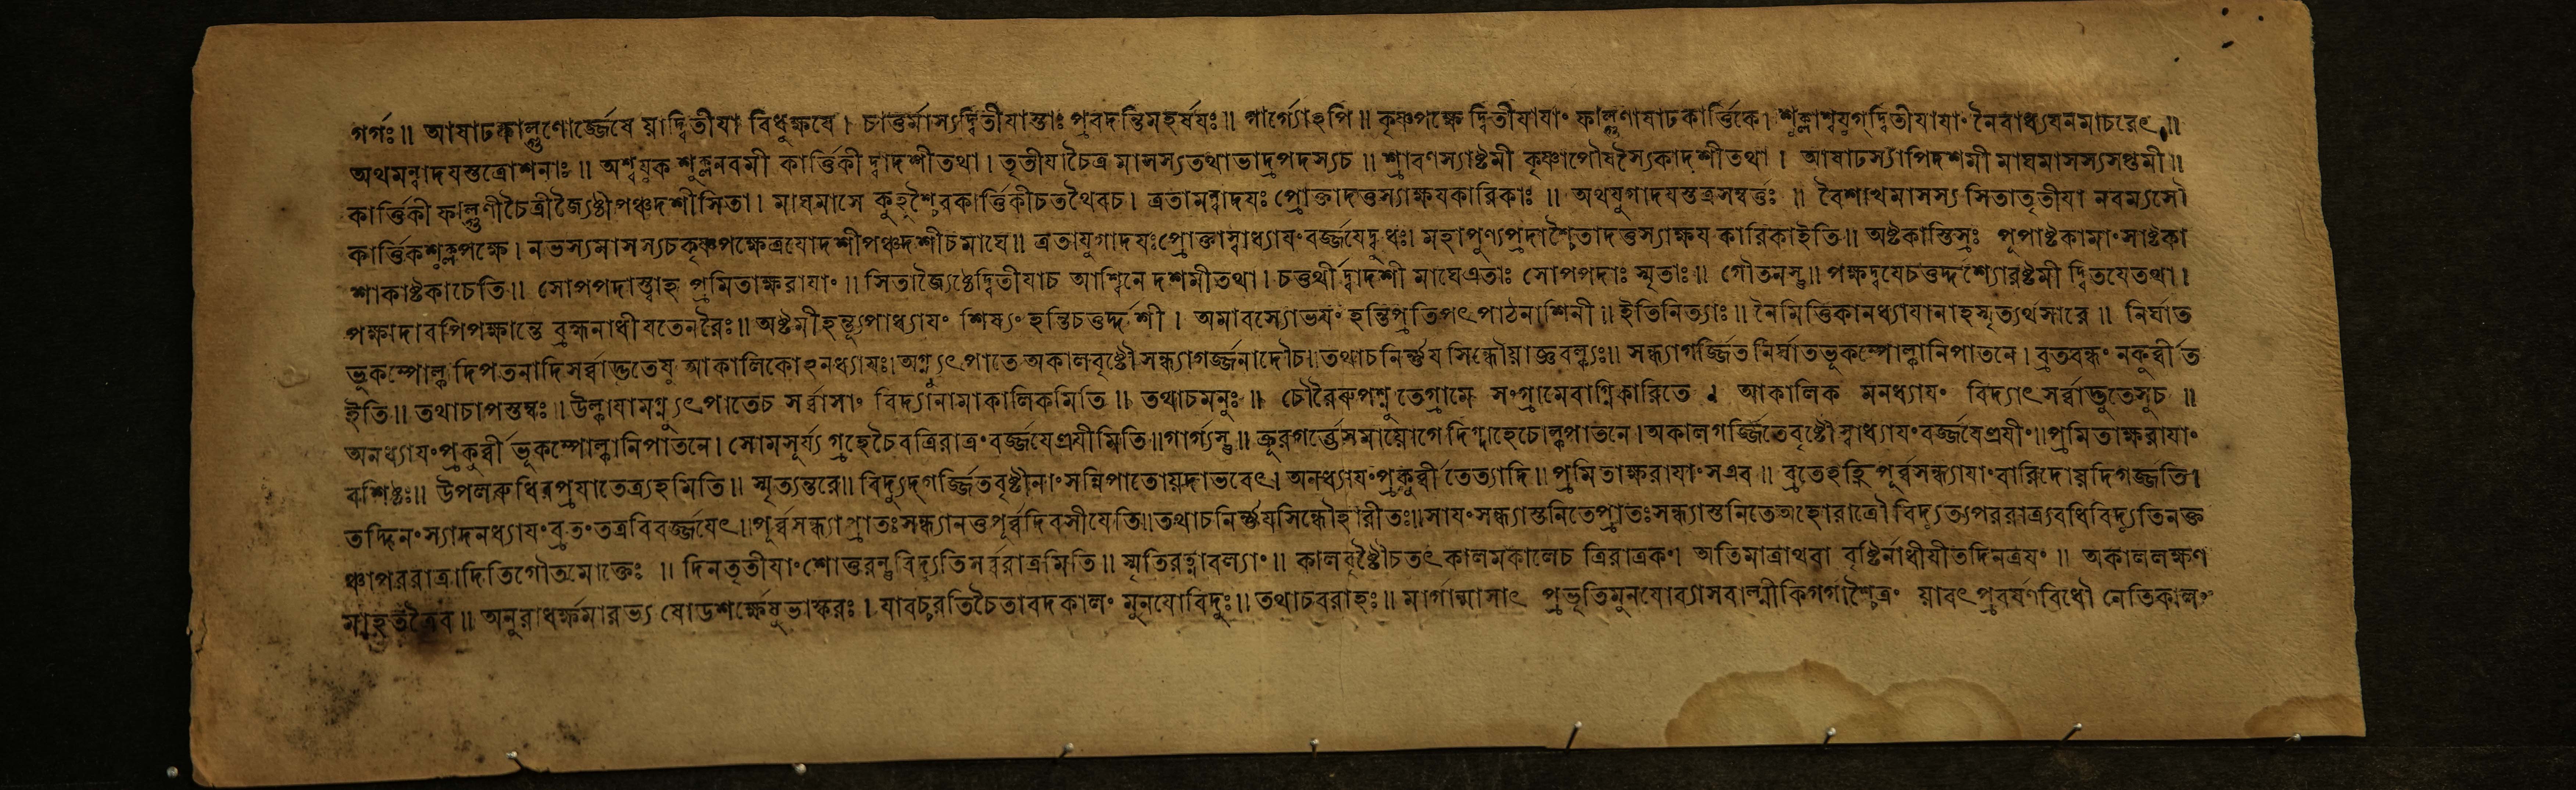 গর্গঃ॥ আষাঢফাল্গুণোর্জ্জেষে য়াদ্বিতীযা বিধুক্ষযে। চাত্তর্মাস্যদ্বিতীযাস্তাঃ প্রবদন্তিমহর্ষযঃ॥ গার্গ্যোঽপি॥ কৃষ্ণপক্ষে দ্বিতীযাযাং ফাল্গুণাষাঢকার্ত্তিকে। শুক্লাশ্বযুগ্দ্বিতীযাযাং নৈবাধ্যযনমাচরেৎ॥
অথমন্বাদযস্তত্রোশনাঃ॥ অশ্বযুক শুক্লনবমী কার্ত্তিকী দ্বাদশীতথা। তৃতীযাচৈত্র মাসস্যতথাভাদ্রপদস্যচ॥ শ্রাবণস্যাষ্টমী কৃষ্ণাপৌষসৈ্যকাদশীতথা। আষাঢস্যাপিদশমী মাঘমাসস্যসপ্তমী॥
কার্ত্তিকী ফাল্গুণীচৈত্রীজ্যৈষ্ঠীপঞ্চদশীসিতা। মাঘমাসে কুহূশ্চৈবকার্ত্তিকীচতথৈবচ। ত্রতামন্বাদযঃ প্রোক্তাদত্তস্যাক্ষযকারিকাঃ॥ অথযুগাদযস্তত্রসম্বর্ত্তঃ॥ বৈশাখমাসস্য সিতাতৃতীযা নবম্যসৌ
কার্ত্তিকশুক্লপক্ষে। নভস্যমাসস্যচকৃষ্ণপক্ষেত্রযোদশীপঞ্চদশীচমাঘে॥ ত্রতাযুগাদযঃপ্রোক্তাস্বাধ্যাযংবর্জ্জযেদ্বুধঃ। মহাপুণ্যপ্রদাশ্চৈতাদত্তস্যাক্ষয কারিকাইতি॥ অষ্টকাস্তিস্রঃ পূপাষ্টকামাংসাষ্টকা
শাকাষ্টকাচেতি॥ সোপপদাস্ত্বাহ প্রমিতাক্ষরাযাং॥ সিতাজ্যৈষ্ঠেদ্বিতীযাচ আশ্বিনে দশমীতথা। চত্তুর্থীদ্বাদশী মাঘেএতাঃ সোপপদাঃ স্মৃতাঃ॥ গৌতমস্তু॥ পক্ষদ্বযেচত্তুর্দ্দশ্যোরষ্টমী দ্বিতযেতথা।
পক্ষাদাবপিপক্ষান্তে ব্রহ্মনাধীযতেনরৈঃ॥ অষ্টমীহন্ত্যুপাধ্যাযং শিষ্যং হন্তিচত্তুর্দ্দশী। অমাবস্যোভযং হন্তিপ্রতিপৎপাঠনাশিনী॥ ইতিনিত্যাঃ॥ নৈমিত্তিকানধ্যাযানাহস্মৃত্যর্থসারে॥ নির্ঘাত
ভূকম্পোল্কাদিপতনাদিসর্ব্বাদ্ভুতেষু আকালিকোঽনধ্যাযঃ।অগ্ন্যুৎপাতে অকালবৃষ্টৌসন্ধ্যাগর্জ্জনাদৌচ॥তথাচনির্ণ্ণয সিন্ধৌয়াজ্ঞবল্ক্যঃ॥ সন্ধ্যাগর্জ্জিত নির্ঘাতভূকম্পোল্কানিপাতনে। ব্রতবন্ধং নকুর্ব্বীত
ইতি॥ তথাচাপস্তম্বঃ॥ উল্কাযামগ্ন্যুৎপাতেচ সর্ব্বাসাং বিদ্যানামাকালিকমিতি॥ তথাচমনুঃ॥ চৌরৈরুপপ্লুতেগ্রামে সংগ্রামেবাগ্নিকারিতে। আকালিক মনধ্যাযং বিদ্যাৎ সর্ব্বাদ্ভুতেসুচ॥
অনধ্যাযংপ্রকুর্ব্বী ভূকম্পোল্কানিপাতনে। সোমসূর্য্য গ্রহেচৈবত্রিরাত্রংবর্জ্জযেত্রযীমিতি॥গার্গ্যস্তু॥ ক্রূরগর্ত্তেসমায়োগে দিগ্দাহেচোল্কপাতনে।অকালগর্জ্জিতেবৃষ্টৌস্বাধ্যাযংবর্জ্জযেত্রযীং॥প্রমিতাক্ষরাযাং
বশিষ্ঠঃ॥ উপলরুধিরপ্রযাতেত্র্যহমিতি॥ স্মৃত্যন্তরে॥ বিদ্যুদ্গর্জ্জিতবৃষ্টীনাংসন্নিপাতোয়দাভবেৎ। অনধ্যাযংপ্রকুর্ব্বীতেত্যাদি॥ প্রমিতাক্ষরাযাংসএব॥ ব্রতেহহ্নিপূর্ব্বসন্ধ্যাযাংবারিদোয়দিগর্জ্জতি।
তদ্দিনংস্যাদনধ্যাযংব্রতংতত্রবিবর্জ্জযেৎ॥পূর্ব্বসন্ধ্যাপ্রাতঃসন্ধ্যানতুপূর্ব্বদিবসীযেতি॥তথাচনির্ণ্ণযসিন্ধৌহারীতঃ॥সাযংসন্ধ্যাস্তনিতেপ্রাতঃসন্ধ্যাস্তনিতেঅহোরাত্রৌ বিদ্যুত্যপররাত্র্যবধিবিদ্যুতিনক্ত
ঞ্চাপররাত্রাদিতিগৌতমোক্তেঃ॥ দিনতৃতীযাংশোত্তরন্তুবিদ্যুতিসর্ব্বরাত্রমিতি॥ স্মৃতিরত্নাবল্যাং॥ কালবৃষ্টৌচতৎ কালমকালেচ ত্রিরাত্রকং। অতিমাত্রাথবা বৃষ্টির্নাধীযীতদিনত্রযং॥ অকাললক্ষণ
মাহতত্রৈব॥ অনুরাধর্ক্ষমারভ্য ষোডশর্ক্ষেষুভাস্করঃ। যাবচ্চরতিচৈতাবদকালং মুনযোবিদুঃ॥ তথাচবরাহঃ॥ মার্গান্মাসাৎ প্রভৃতিমুনযোব্যাসবাল্মীকিগর্গাশ্চৈত্রং য়াবৎ প্রবর্ষণবিধৌ নেতিকালং